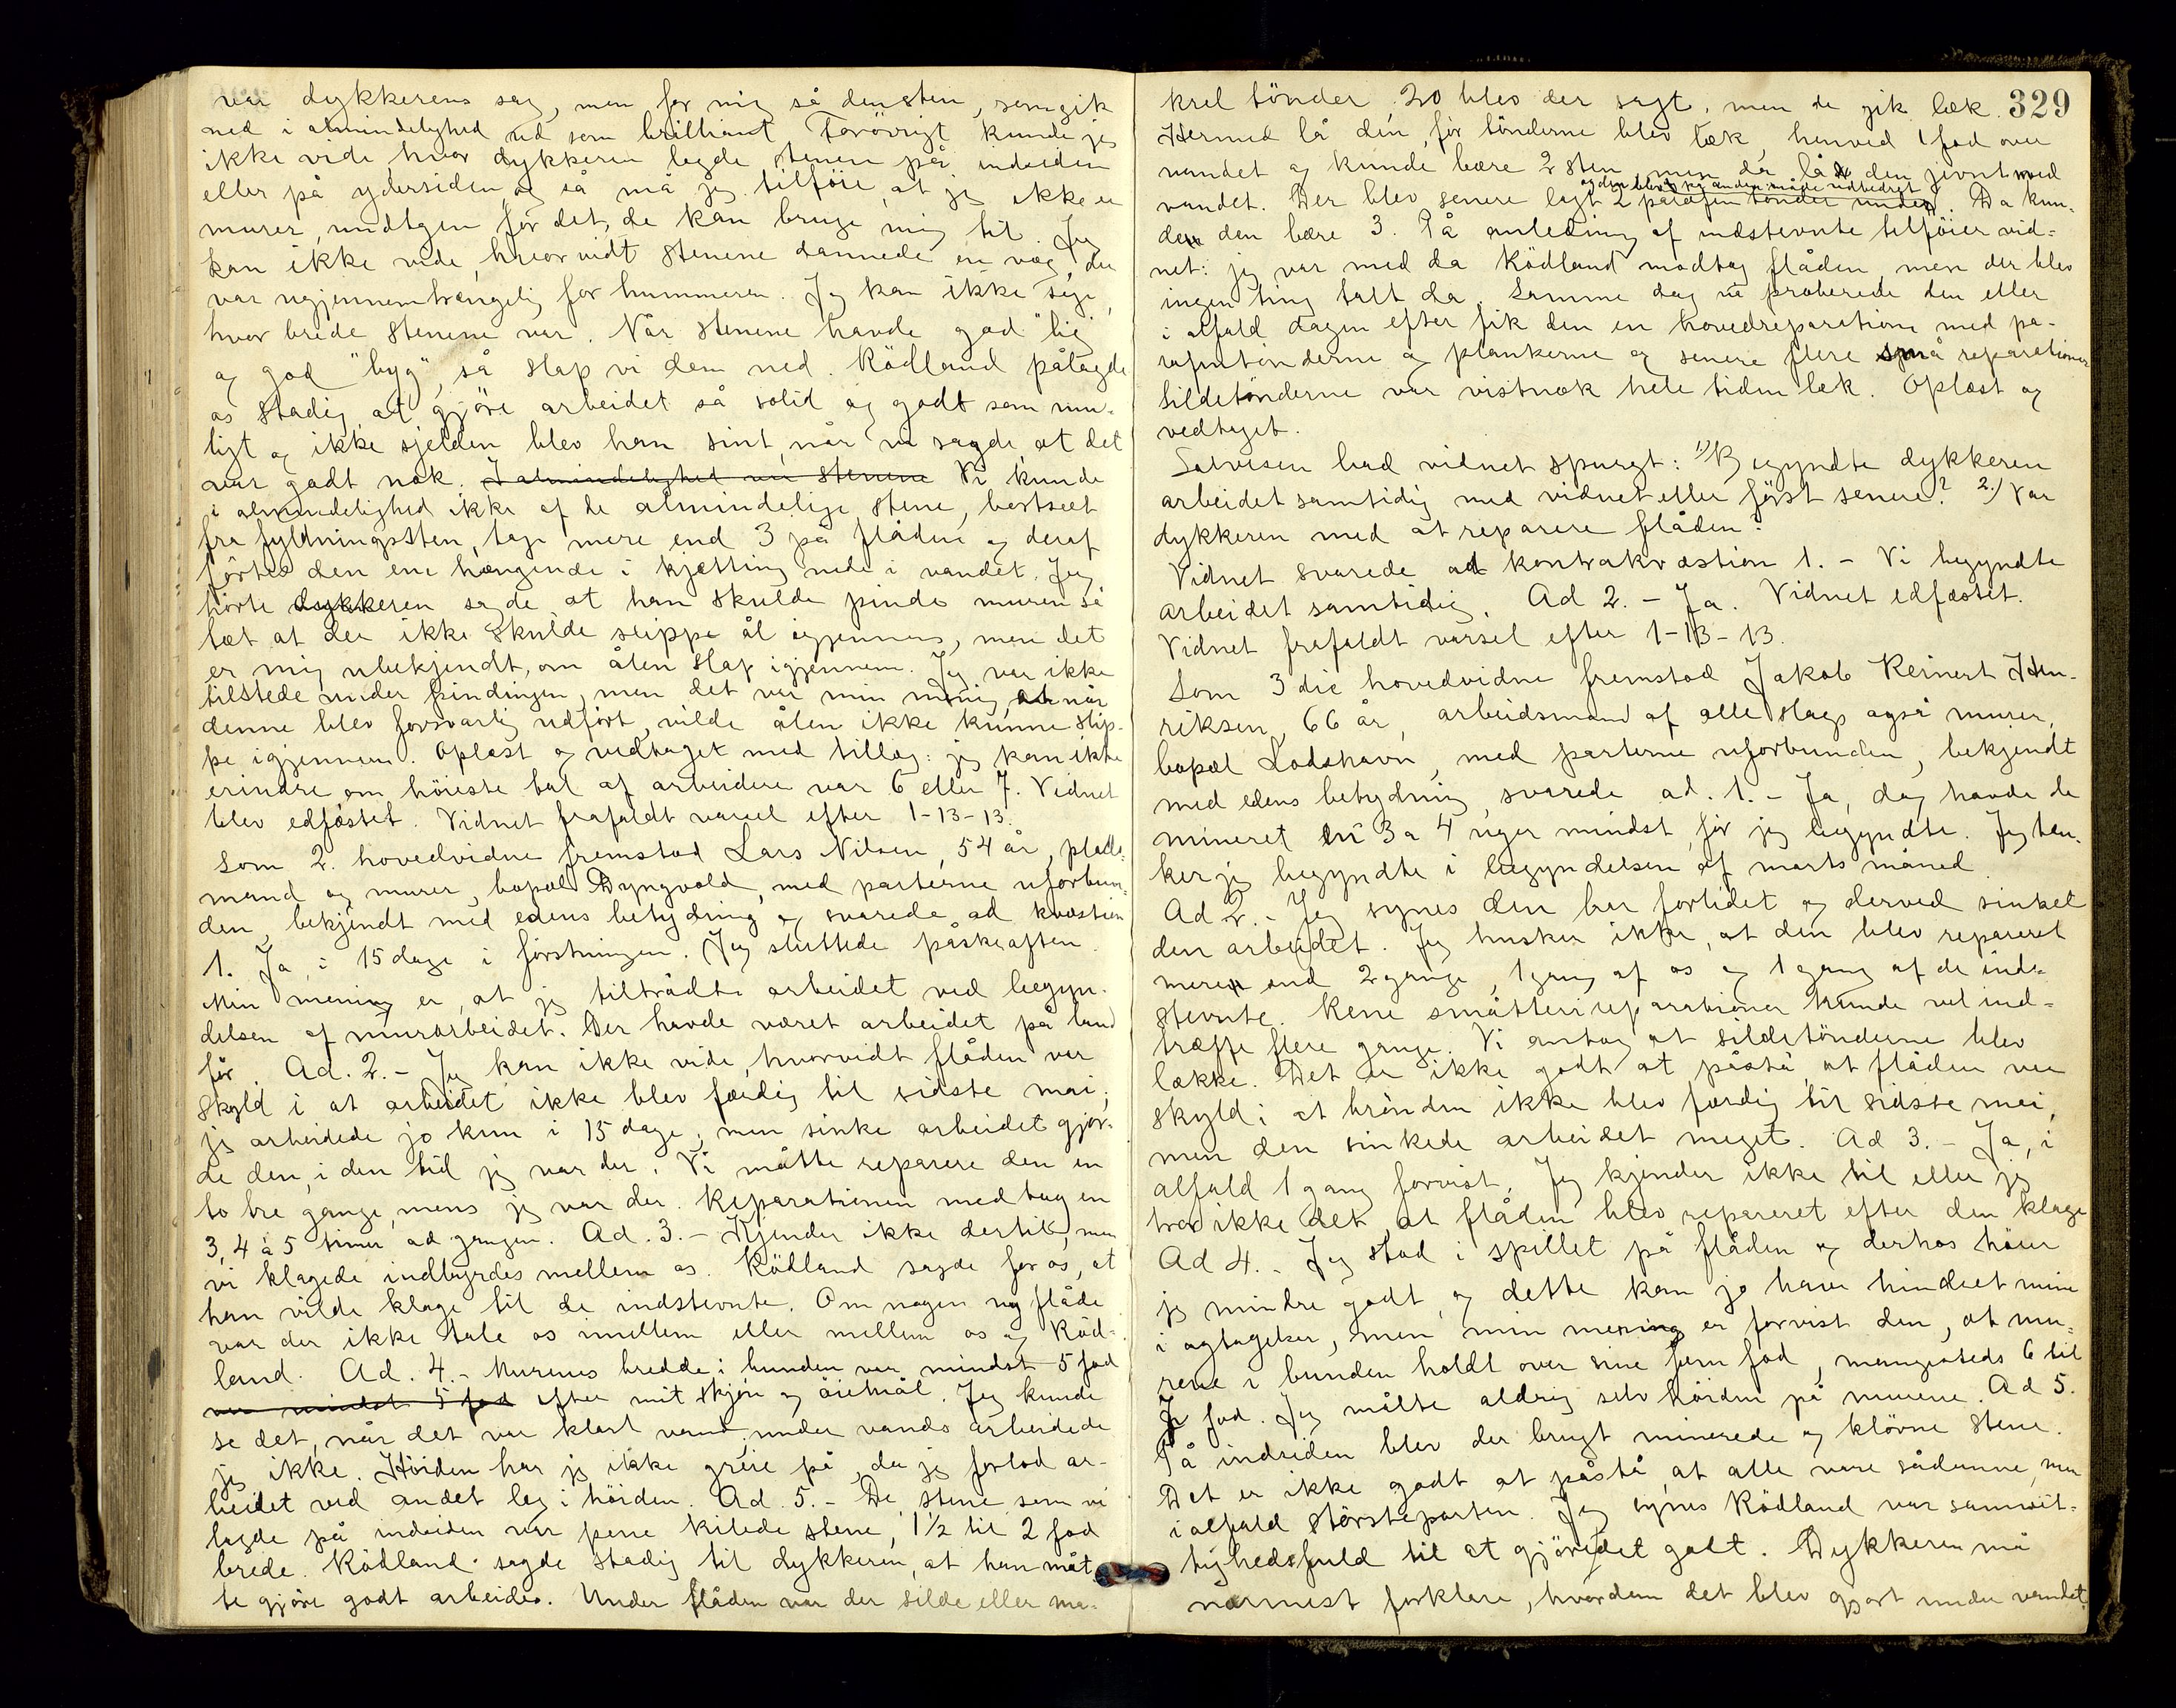 var dykkerens sag, men for mig så den sten, som gik
ned i almindelighed ud som brilliant Forövrigt kunde jeg
ikke vide hvor dykkeren lagde stenen på indsiden
eller på ydersiden, og så må jeg tilföie, at jeg ikke er
murer, undtagen for det, de kan bruge mig til. Jeg
kan ikke vide, hvorvidt stenene dannede en væg, der
var ugjennemtrængelig for hummeren. Jeg kan ikke sige,
hvor brede stenene var. Når stenene havde god "lig"
og god "byg", så slap vi dem ned. Rödland pålagde
os stadig at gjöre arbeidet så solid og godt som mu-
ligt og ikke sjelden blev han sint, når vi sagde, at det
var godt nok. I almindelighed var stenene Vi kunde
i almindelighed ikke af de almindelige stene, bortseet
fra fyldningssten, tage mere end 3 på flåden og deraf
förtes den ene hængende i kjætting nede i vandet. Jeg
hörte dykkeren sagde at han skulde pinde muren så
tæt at der ikke skulde slippe ål igjennem, men det
er mig ubekjendt, om ålen slap igjennem. Jeg var ikke
tilstede under pindingen, men det var min mening, at når
denne blev forsvarlig udfört, vilde ålen ikke kunne slip-
pe igjennem. Oplæst og vedtaget med tillæg: jeg kan ikke
erindre om höieste tal af arbeidere var 6 eller 7. Vidnet
blev edfæstet. Vidnet frafaldt varsel efter 1-13-13.
Som 2. hovedvidne fremstod Lars Nilsen, 54 år, plads-
mand og murer, bopæl Dyngvold, med parterne uforbun-
den, bekjendt med edens betydning og svarede ad kvæstion
1. Ja, i 15 dage i förstningen. Jeg sluttede påskeaften.
Min mening er, at jeg tiltrådte arbeidet ved begyn-
delsen af murarbeidet. Der havde været arbeidet på land
för. Ad. 2.- Jeg kan ikke vide, hvorvidt flåden var
skyld i at arbeidet ikke blev færdig til sidste mai;
jeg arbeidede jo kun i 15 dage, men sinke arbeidet gjor-
de den, i den tid jeg var der. Vi måtte reparere den en
to tre gange, mens jeg var der. Reparationen medtog en
3, 4 à 5 timer ad gangen. Ad. 3.- Kjender ikke dertil, men
vi klagede indbyrdes mellem os. Rödland sagde for os, at
han vilde klage til de indstevnte. Om nogen ny flåde
var der ikke tale os imellem eller mellem os og Röd-
land. Ad. 4.- Murenes bredde i bunden var mindst 5 fod
var mindst 5 fod efter mit skjön og öiemål. Jeg kunde
se det, når det var klart vand, under vands arbeidede
jeg ikke. Höiden har jeg ikke greie på, da jeg forlod ar-
beidet ved andet lag i höiden. Ad. 5.- De stene som vi
lagde på indsiden var pene kilede stene, 1½ til 2 fod
brede. Rödland sagde stadig til dykkeren, at han måt-
te gjöre godt arbeide. Under flåden var der silde eller ma-
329
krel tönder, 20 blev der sagt, men de gik læk.
Hermed lå den, för tönderne blev læk, henved 1 fod over
vandet og kunde bære 2 sten, men da lå den jevnt med
og den blev på anden måde udbedret
vandet. Der blev senere lagt 2 parafin tönder under. Da kun-
de den bære 3. På anledning af indstevnte tilföier vid-
net: jeg var med da Rödland modtog flåden, men der blev
ingen ting talt da. Samme dag vi proberede den eller
i alfald dagen efter fik den en hovedreparation med pa-
rafintönderne og plankerne og senere flere små reparationer
sildetönderne var vistnok hele tiden læk. Oplæst og
vedtaget.
Salvesen bad vidnet spurgt: 1) Begyndte dykkeren
arbeidet samtidig med vidnet eller först senere? 2.) Var
dykkeren med at reparere flåden?
Vidnet svarede ad kontrakvæstion 1. - Vi begyndte
arbeidet samtidig. Ad 2. - Ja. Vidnet edfæstet.
Vidnet frafaldt varsel efter 1-13-13.
Som 3die hovedvidne fremstod Jakob Reinert Hen-
riksen, 66 år, arbeidsmand af alle slags også murer,
bopæl Lodshavn, med parterne uforbunden, bekjendt
med edens betydning, svarede ad. 1. - Ja, dog havde de
mineret en 3 a 4 uger mindst, för jeg begyndte. Jeg tæn-
ker jeg begyndte i begyndelsen af marts måned.
Ad 2. - Jeg synes den har fortidet og derved sinket
den arbeidet. Jeg husker ikke, at den blev repareret
mere end 2 gange, 1 gang af os og 1 gang af de ind-
stevnte. Rene småtterireparationer kunde vel ind-
træffe flere gange. Vi antog at sildetönderne blev
lække. Det er ikke godt at påstå, at flåden var
skyld i at brönden ikke blev færdig til sidste mai,
men den sinkede arbeidet meget. Ad 3. - Ja, i
alfald 1 gang forvist. Jeg kjender ikke til eller jeg
tror ikke det, at flåden blev repareret efter den klage
Ad 4. - Jeg stod i spillet på flåden og derhos hörer
jeg mindre godt, og dette kan jo have hindret mine
iagtagelser, men min mening er forvist den, at mu-
rene i bunden holdt over sine fem fod, mangesteds 6 til
7 fod. Jeg målte aldrig selv höiden på murene. Ad 5.
På indsiden blev der brugt minerede og klövne stene.
Det er ikke godt at påstå, at alle vare sådanne, men
ialfald störsteparten. Jeg synes Rödland var samvit-
tighedsfuld til at gjöre det godt. Dykkeren må
nærmest forklare, hvordan det blev gjort under vandet.